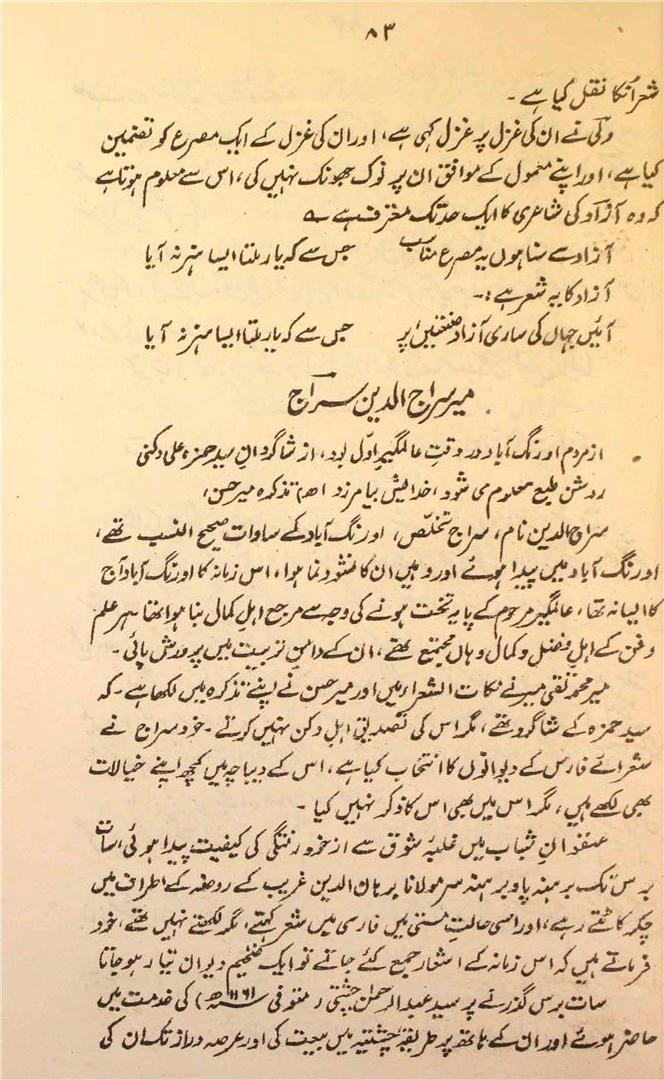 ۸۳
شعر انکا نقل کیا ہے ۔
ولی نے ان کی غزل پر غزل کہی ہے، اور ان کی غزل کے ایک مصرع کو تضمین
کیا ہے، اور اپنے معمول کے موافق ان پر نوک جھونک نہیں کی، اس سے معلوم ہوتا ہے
کہ وہ آزاد کی شاعری کا ایک حد تک معترف ہے ؎
آزاد سے سنا ہوں یہ مصرع مناسب جس سے کہ یار ملتا ایسا ہنر نہ آیا
آزاد کا یہ شعر ہے :۔
آئیں جہاں کی ساری آزاد صنعتیں پر جس سے کہ یار ملتا ایسا ہنر نہ آیا
میر سراج الدین سراج
از مردم اورنگ آباد در وقت عالمگیر اوّل بود، از شاگردانِ سید حمزہ علی دکنی
روشن طبع معلوم می شود، خدایش بیامرزد اھ (تذکرہ میر حسن)
سراج الدین نام، سراج تخلّص، اورنگ آباد کے سادات صحیح النسب تھے،
اورنگ آباد میں پیدا ہوئے اور وہیں ان کا نشو و نما ہوا، اس زمانہ کا اورنگ آباد آج
کا ایسا نہ تھا، عالمگیر مرحوم کے پایہ تخت ہونے کی وجہ سے مرجع اہل کمال بنا ہوا تھا ہر علم
و فن کے اہل فضل و کمال وہاں مجتمع تھے، ان کے دامن تربیت میں پرورش پائی ۔
میر محمد تقی میر نے نکات الشعراء میں اور میر حسن نے اپنے تذکرہ میں لکھا ہے ۔ کہ
سید حمزہ کے شاگرد تھے، مگر اس کی تصدیق اہل دکن نہیں کرتے ۔ خود سراج نے
شعرائے فارس کے دیوانوں کا انتخاب کیا ہے، اس کے دیباچہ میں کچھ اپنے خیالات
بھی لکھے ہیں، مگر اس میں بھی اس کا ذکر نہیں کیا ۔
عنفوانِ شباب میں غلبۂ شوق سے از خود رفتگی کی کیفیت پیدا ہوئی، سات
برس تک برہنہ پا و برہنہ سر مولانا برہان الدین غریب کے روضہ کے اطراف میں
چکر کاٹتے رہے، اور اسی حالتِ مستی میں فارسی میں شعر کہتے، مگر لکھتے نہیں تھے، خود
فرماتے ہیں کہ اس زمانہ کے اشعار جمع کئے جاتے تو ایک ضخیم دیوان تیار ہو جاتا
سات برس گذرنے پر سید عبد الرحمٰن چشتی (متوفی ۱۱۶۱ھ) کی خدمت میں
حاضر ہوئے اور ان کے ہاتھ پر طریقۂ چشتیہ میں بیعت کی اور عرصہ دراز تک ان کی